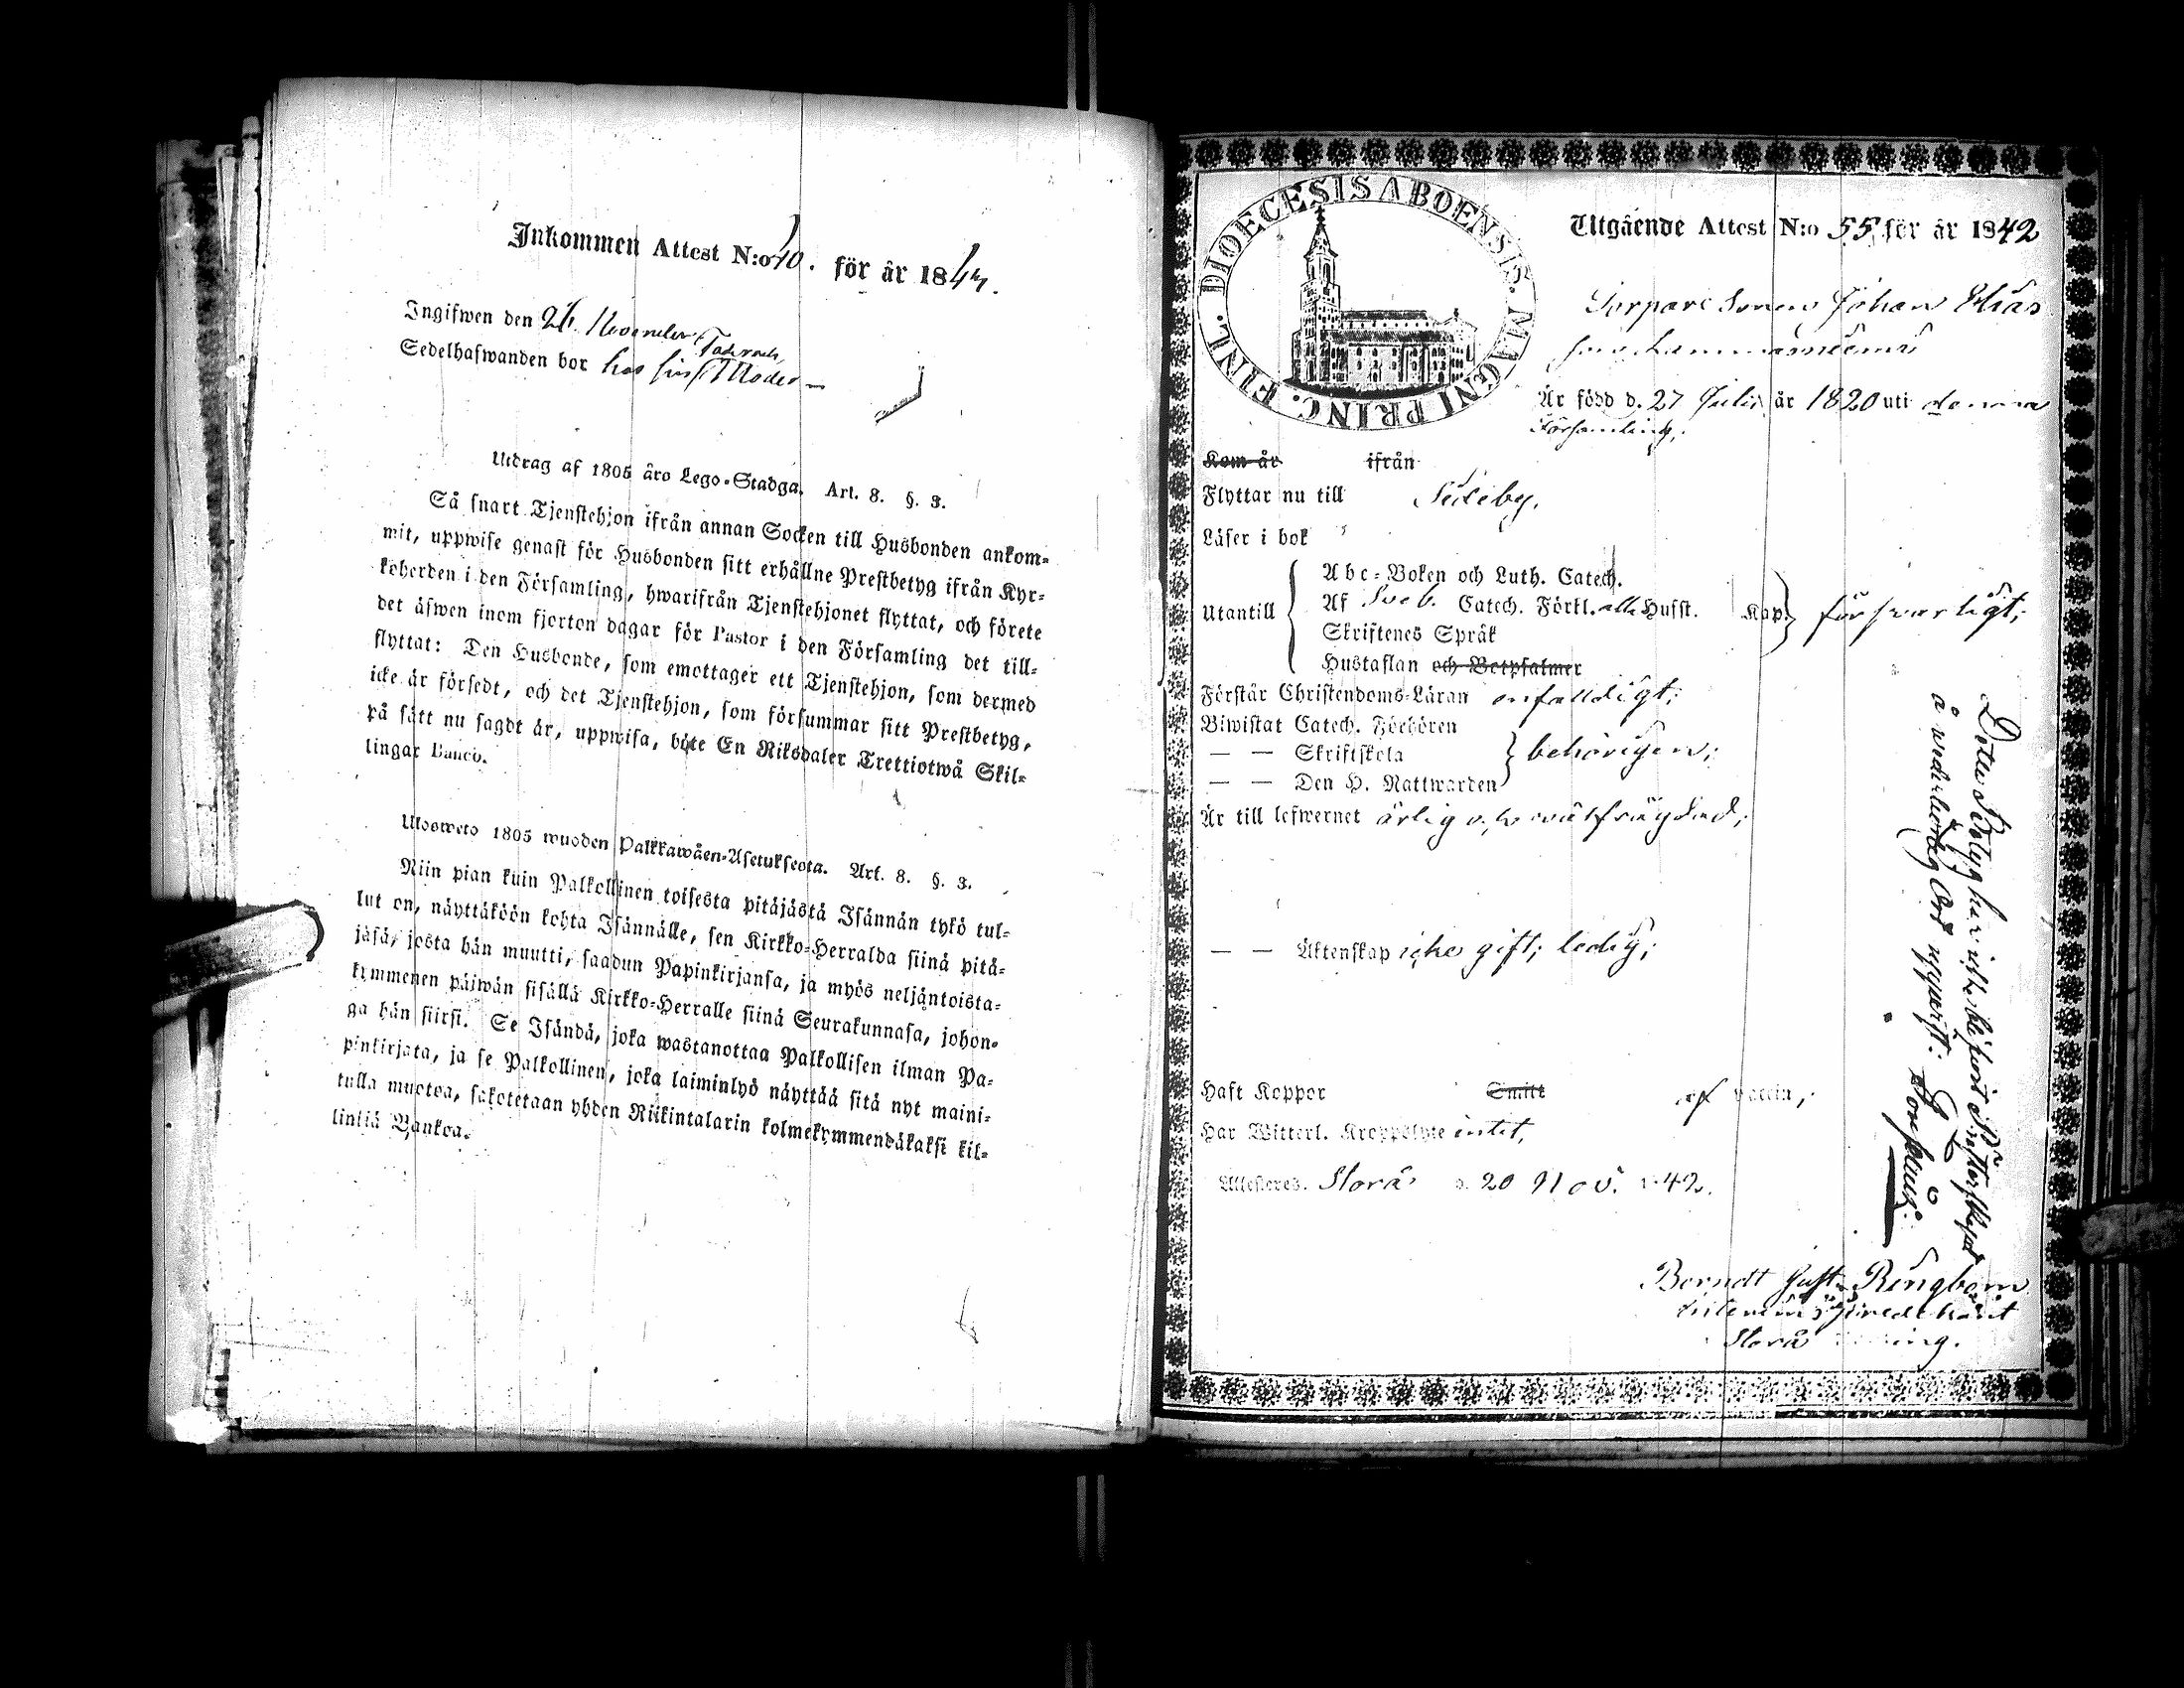 Inkommen Attest N:o 10. för år 184
Ingifwen den 26. November
Sedelhafwanden bor hos sin Moder
Utdrag af 1805 åro Lego-Stadga. Art. 8. §. 3.
Så snart Tjenstehjon ifrån annan Socken till Husbonden ankom-
mit, uppwise genast för Husbonden sitt erhållne Prestbetyg ifrån Kyr-
koherden i den Församling, hwarifrån Tjenstehjonet flyttat, och förete
det äfwen inom fjorton dagar för Pastor i den Församling det till-
flyttat: Den Husbonde, som emottager ett Tjenstehjon, som dermed
icke är försedt, och det Tjenstehjon, som försummar sitt Prestbetyg,
på sätt nu sagdt är, uppwisa, böte En Riksdaler Trettiotwå Skil-
lingar Banco.
Ulosweto 1805 wuoden Palkkawäen-Asetuksesta. Art. 8. §. 3.
Niin pian kuin Palkollinen toisesta pitäjästä Isännän tykö tul-
lut on, näyttäköön kohta Isännälle, sen Kirkko-Herralda siinä pitä-
jäsä, josta hän muutti, saadun Papinkirjansa, ja myös neljäntoista-
kymmenen päiwän sisällä Kirkko-Herralle siinä Seurakunnasa, johon-
ga hän siirsi. Se Isändä, joka wastanottaa Palkollisen ilman Pa-
pinkirjata, ja se Palkollinen, joka laiminlyö näyttää sitä nyt maini-
tulla muotoa, sakotetaan yhden Riikintalarin kolmekymmendäkaksi kil-
linkiä Bankoa.
DIOECESIS ABOENSIS. MAGNI PRINC. FINL.
Utgående Attest N:o 55 för år 1842
Torpare Sonen Johan Elias
Är född d. 27 Julii år 1820 uti denna
Församling,
Kom år ifrån
Flyttar nu till Sideby,
Läser i bok
Abc-Boken och Luth. Catech.
Utantill Af Sveb. Catech. Förkl. alla Hufst. Kap. försvarligt;
Skriftenes Språk
Hustaflan och Botpsalmer
Förstår Christendoms-Läran enfaldigt;
Biwistat Catech. Förhören
— — Skriftskola behörigen;
— — Den H. Nattwarden
Är till lefwernet ärlig o. wälfrägdad;
— — Äktenskap icke gift; ledig;
Haft Koppor Smitt af vaccin,
Har Witterl. Kroppslyte intet,
Attesteres. Storå d. 20 Nov. 1842.
Berndt Gust. Ringbom
Storå
Detta Betyg har icke blifvit
å ort uppvist: